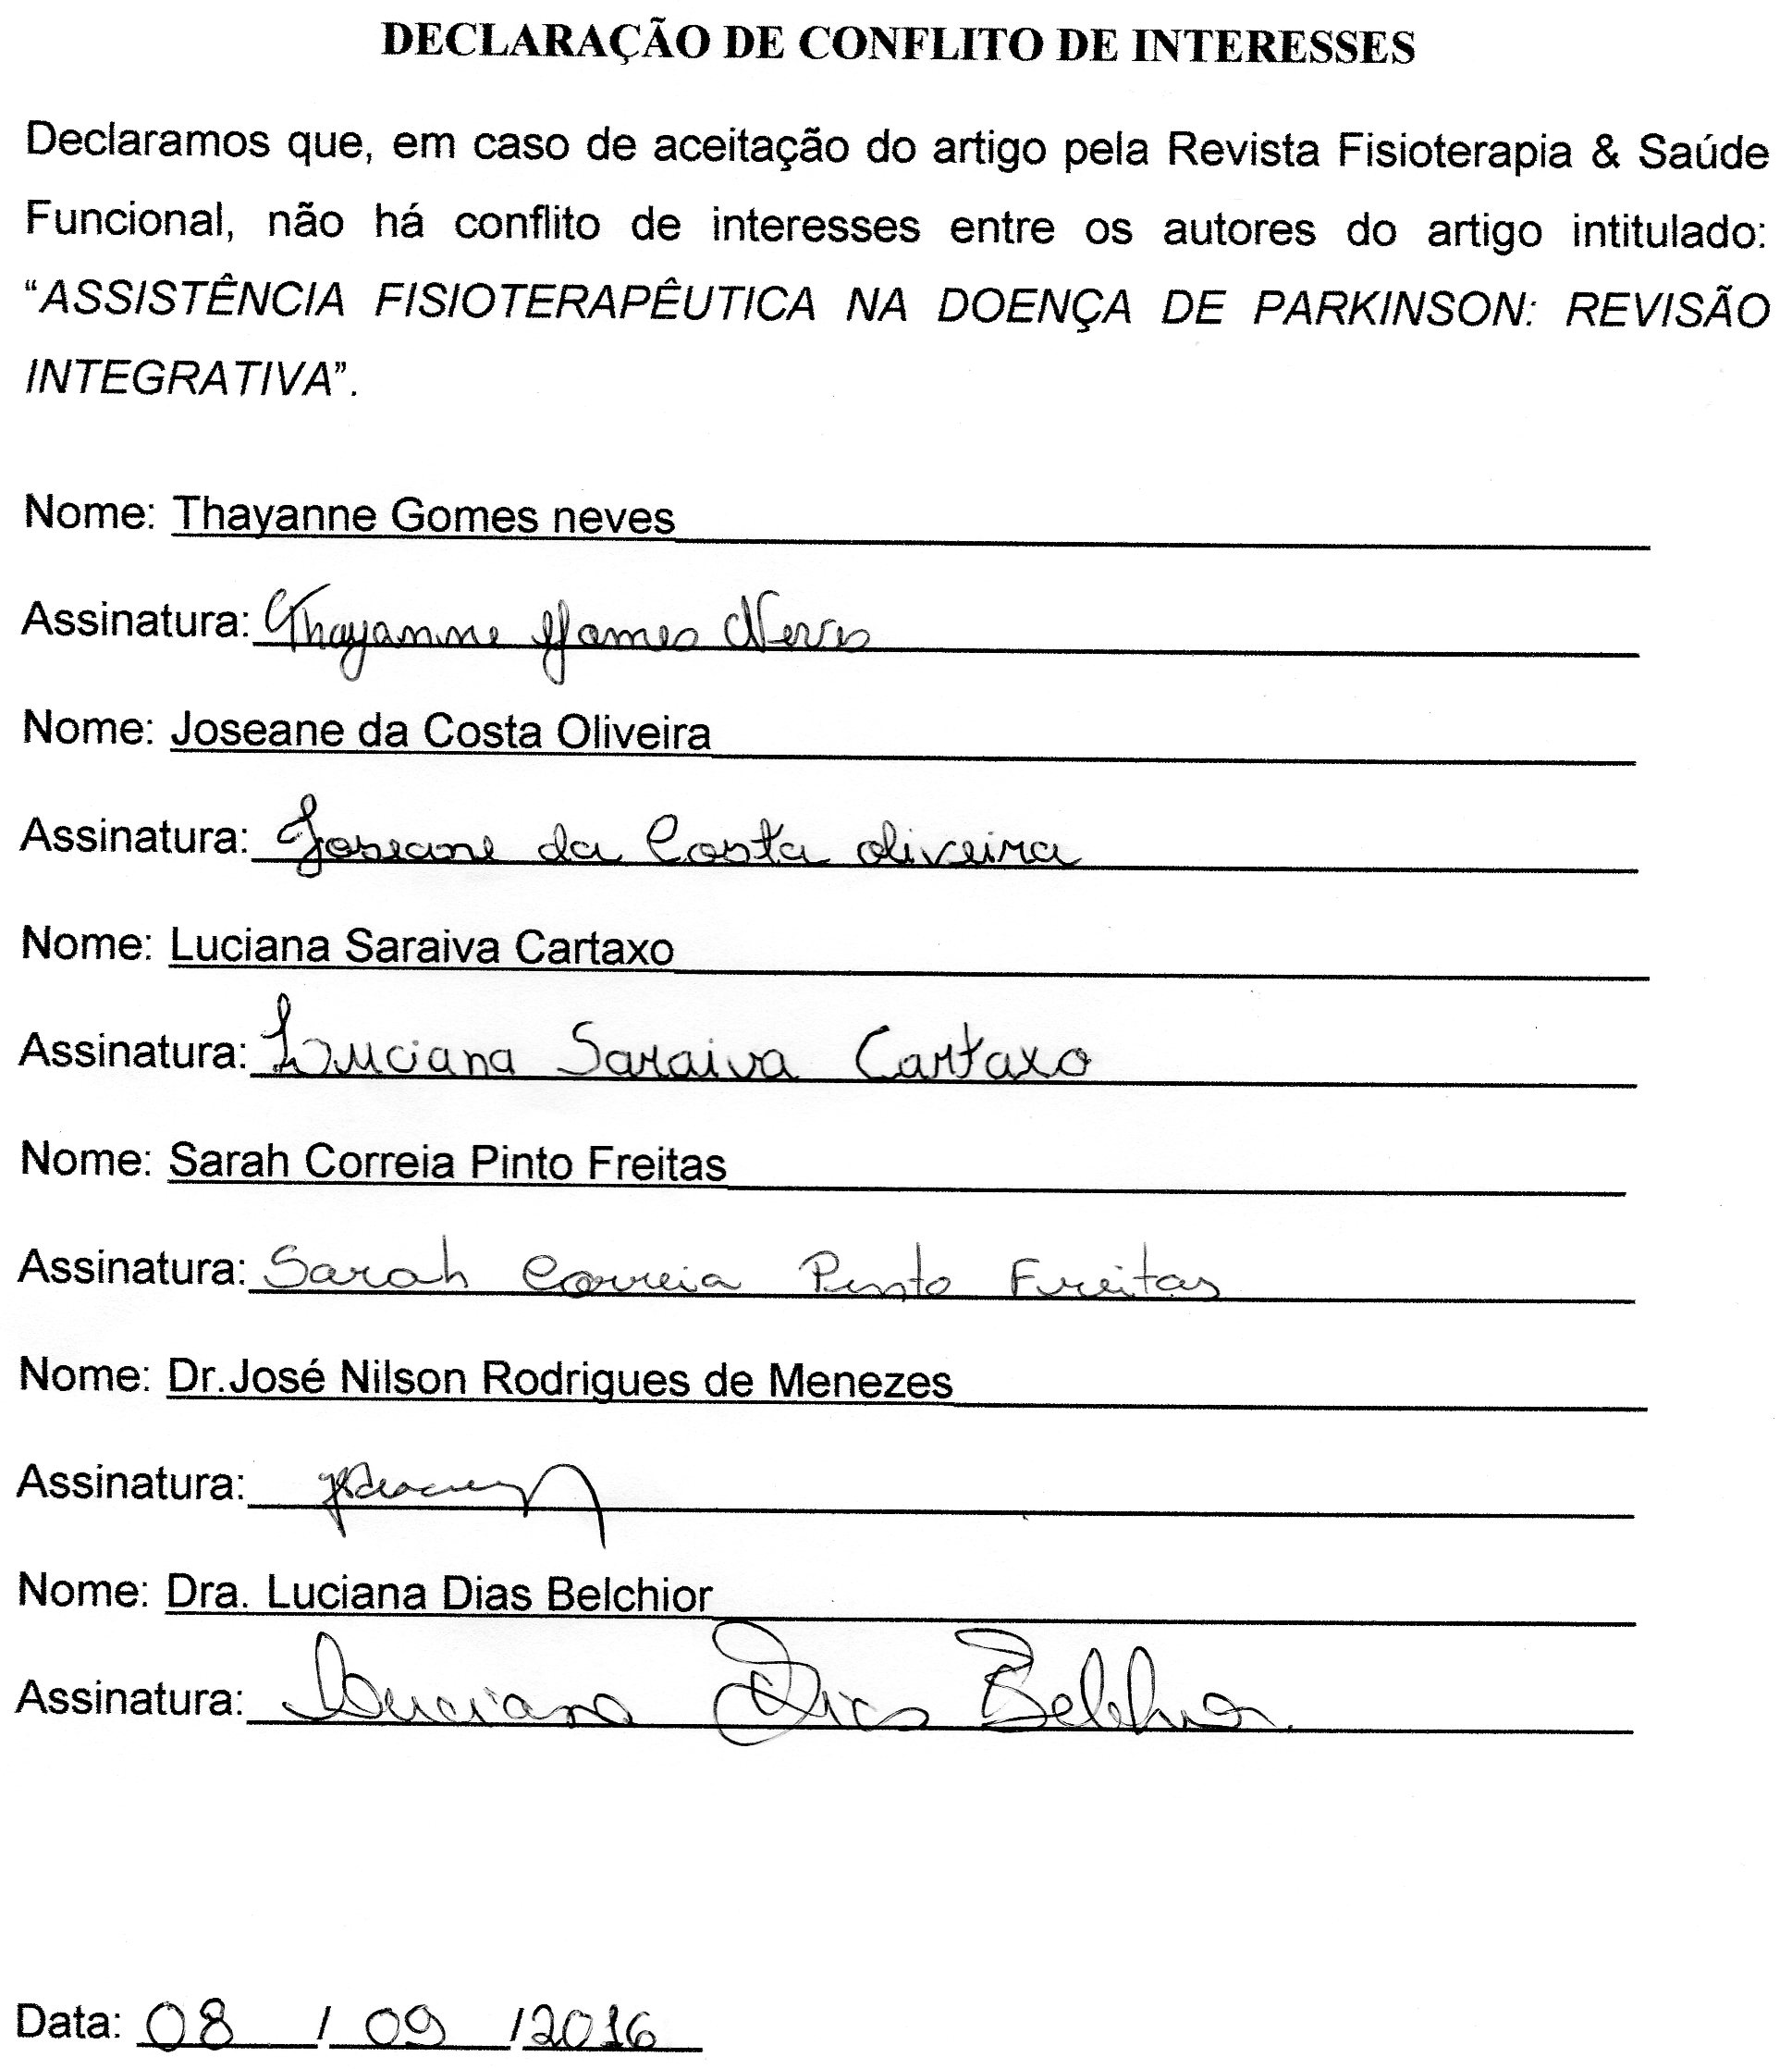 DECLARAÇÃO DE CONFLITO DE INTERESSES
Declaramos que, em caso de aceitação do artigo pela Revista Fisioterapia & Saúde
Funcional, não há conflito de interesses entre os autores do artigo intitulado:
“ASSISTÊNCIA FISIOTERAPÊUTICA NA DOENÇA DE PARKINSON: REVISÃO
INTEGRATIVA”.
Nome: Thayanne Gomes neves
Assinatura: Thayanne Gomes Neves
Nome: Joseane da Costa Oliveira
Assinatura: Joseane da Costa oliveira
Nome: Luciana Saraiva Cartaxo
Assinatura: Luciana Saraiva Cartaxo
Nome: Sarah Correia Pinto Freitas
Assinatura: Sarah Correia Pinto Freitas
Nome: Dr.José Nilson Rodrigues de Menezes
Assinatura:
Nome: Dra. Luciana Dias Belchior
Assinatura: Luciana Dias Belchior
Data: 08 / 09 /2016